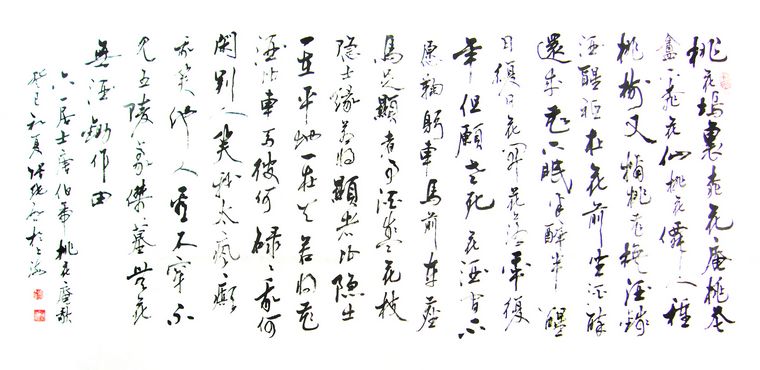 桃花塢裏桃花庵桃花
盦下桃花仙桃花僊人種
桃樹又摘桃花換酒錢
酒醒祗在花前坐酒醉
還來花下眠半醉半醒
日復日花開花落年復
年但願老死花酒間不
愿鞠躬車馬前車塵
馬足顯者事酒盞花枝
隐士缘若将顯者比隐士
一在平地一在天若将花
酒比車马彼何碌碌我何
閑别人笑我太瘋癲
我笑他人看不穿不
见五陵豪傑墓無花
無酒锄作田
六一居士唐伯虎桃花庵歌
癸巳初夏 於上海